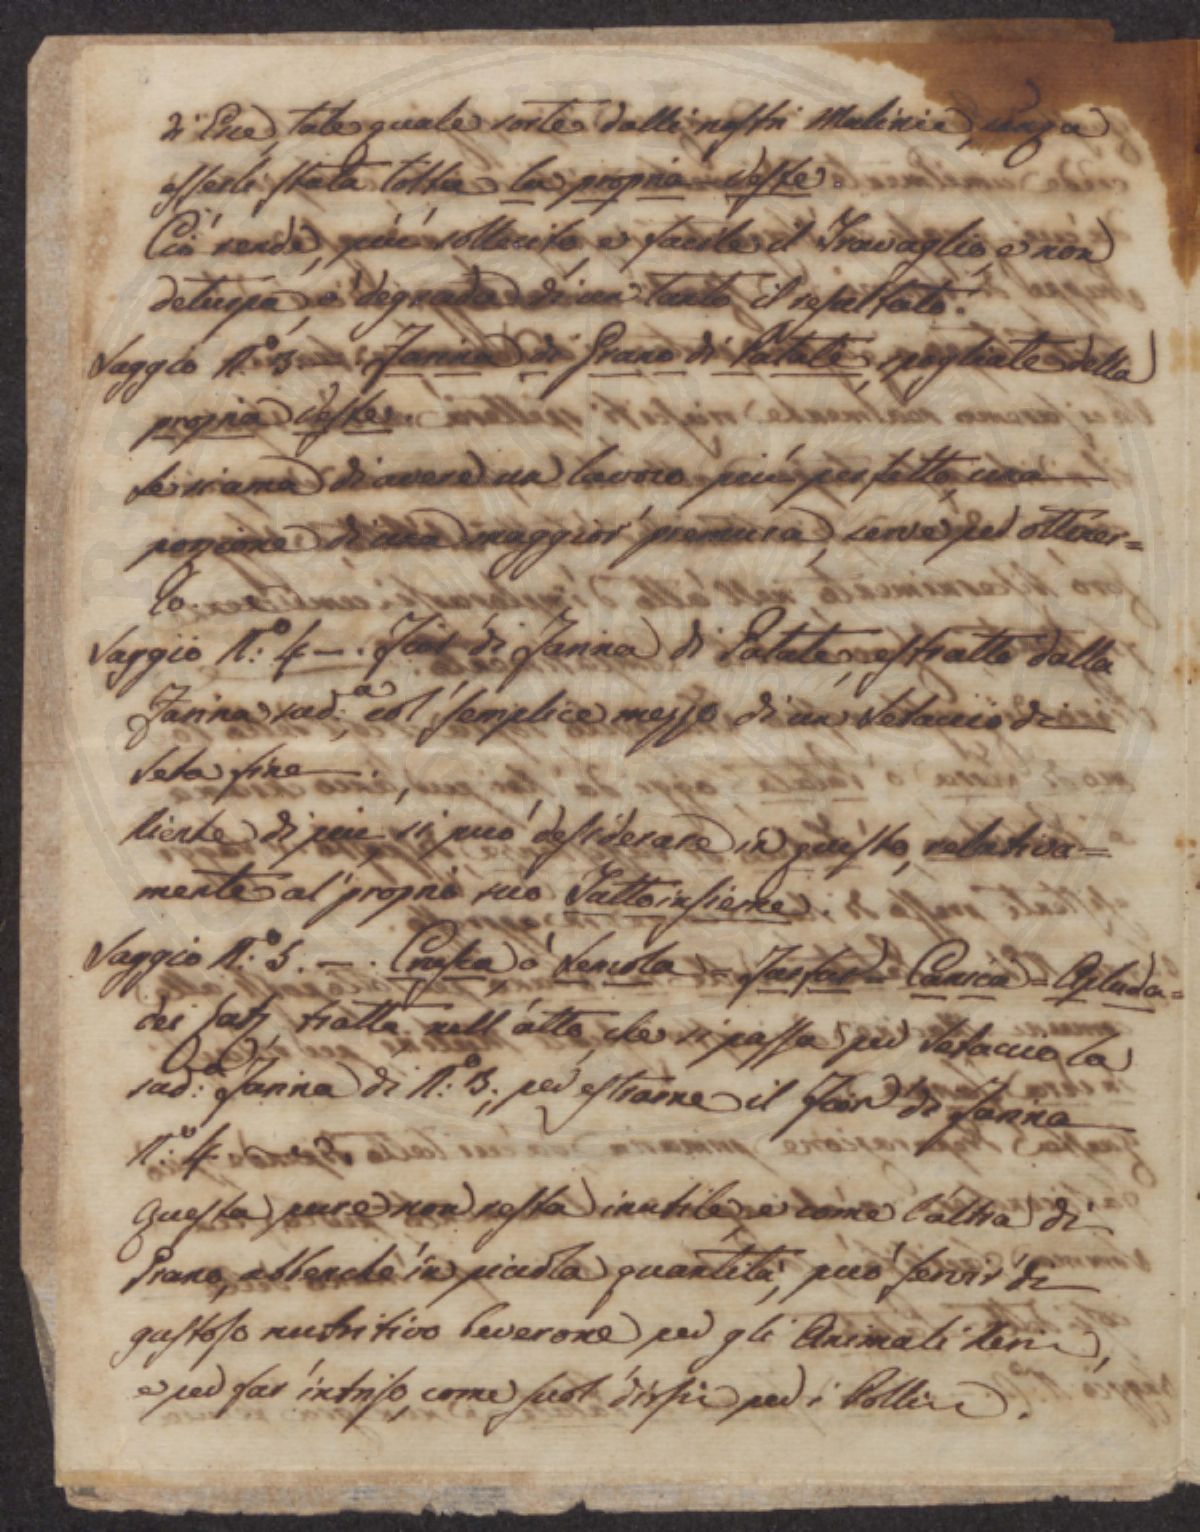 di Esse, tale quale sorte dalli nostri Mulini, senza
esserle stata tolta la propria Veste.
Ció rende, piú sollecito, e facile il Travaglio, e non
deturpa, o degrada di un tanto il resultato.
Saggio N.o 3. — . Farina di Grano di Patate, spogliate della
propria Veste.
Se si ama di avere un lavoro piú perfetto, una
porzione di una maggior premura, serve per ottener=
lo.
Saggio N.o 4 — . Fior di Farina di Patate, estratto dalla
Farina sud.a col semplice mezzo di un Setaccio di
Seta fine.
Niente di piú si puó desiderare in questo, relativa=
mente al proprio suo Tattoinsieme.
Saggio N.o 5. — . Crusca ó Semola = Furfur = Canica = Apluda =
dei Lati, tratta nell'atto, che si passa per Setaccio la
sud.a Farina di N.o 3., per estrarne il Fior di Farina
N.o 4
Questa pure non resta inutile, e come l'altra di
Grano, abbenché in piccola quantitá, puó servir di
gustoso nutritivo beverone per gli Animali Neri,
e per far intriso, come suol dirsi per i Polli.